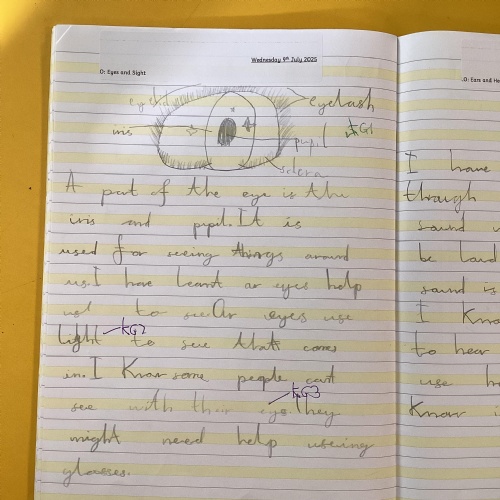 Wednesday 9th July 2025
.O: Eyes and Sight
eyelid eyelash
iris pupil KG1
sclera
A part of the eye is the
iris and pupil. It is
used for seeing things around
us. I have learnt ar eyes help
us to see Ar eyes use
light KG2 to see that comes
in. I Know some people cant
KG3
see with their eys. They
might need help useing
glasses.
.O: Ears and He
I have
through
sound
be loud
sound is
I Know
to hear
use
Know